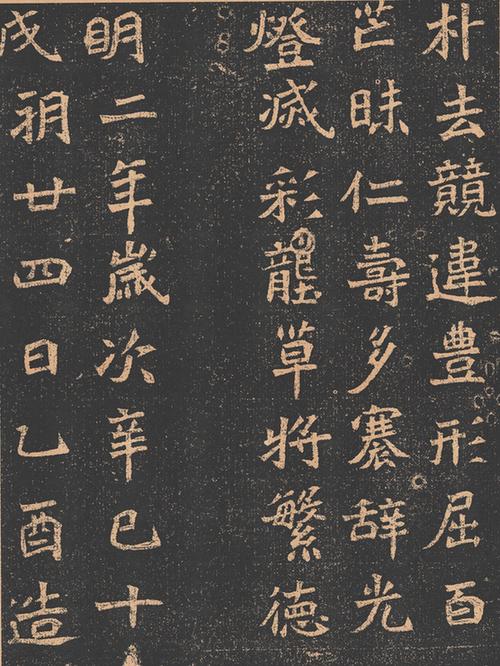 朴去競違豊形屈百
芒昧仁壽多褰辞光
燈滅彩壟草将繁德
明二年歲次辛巳十
戌朔廿四日乙酉造